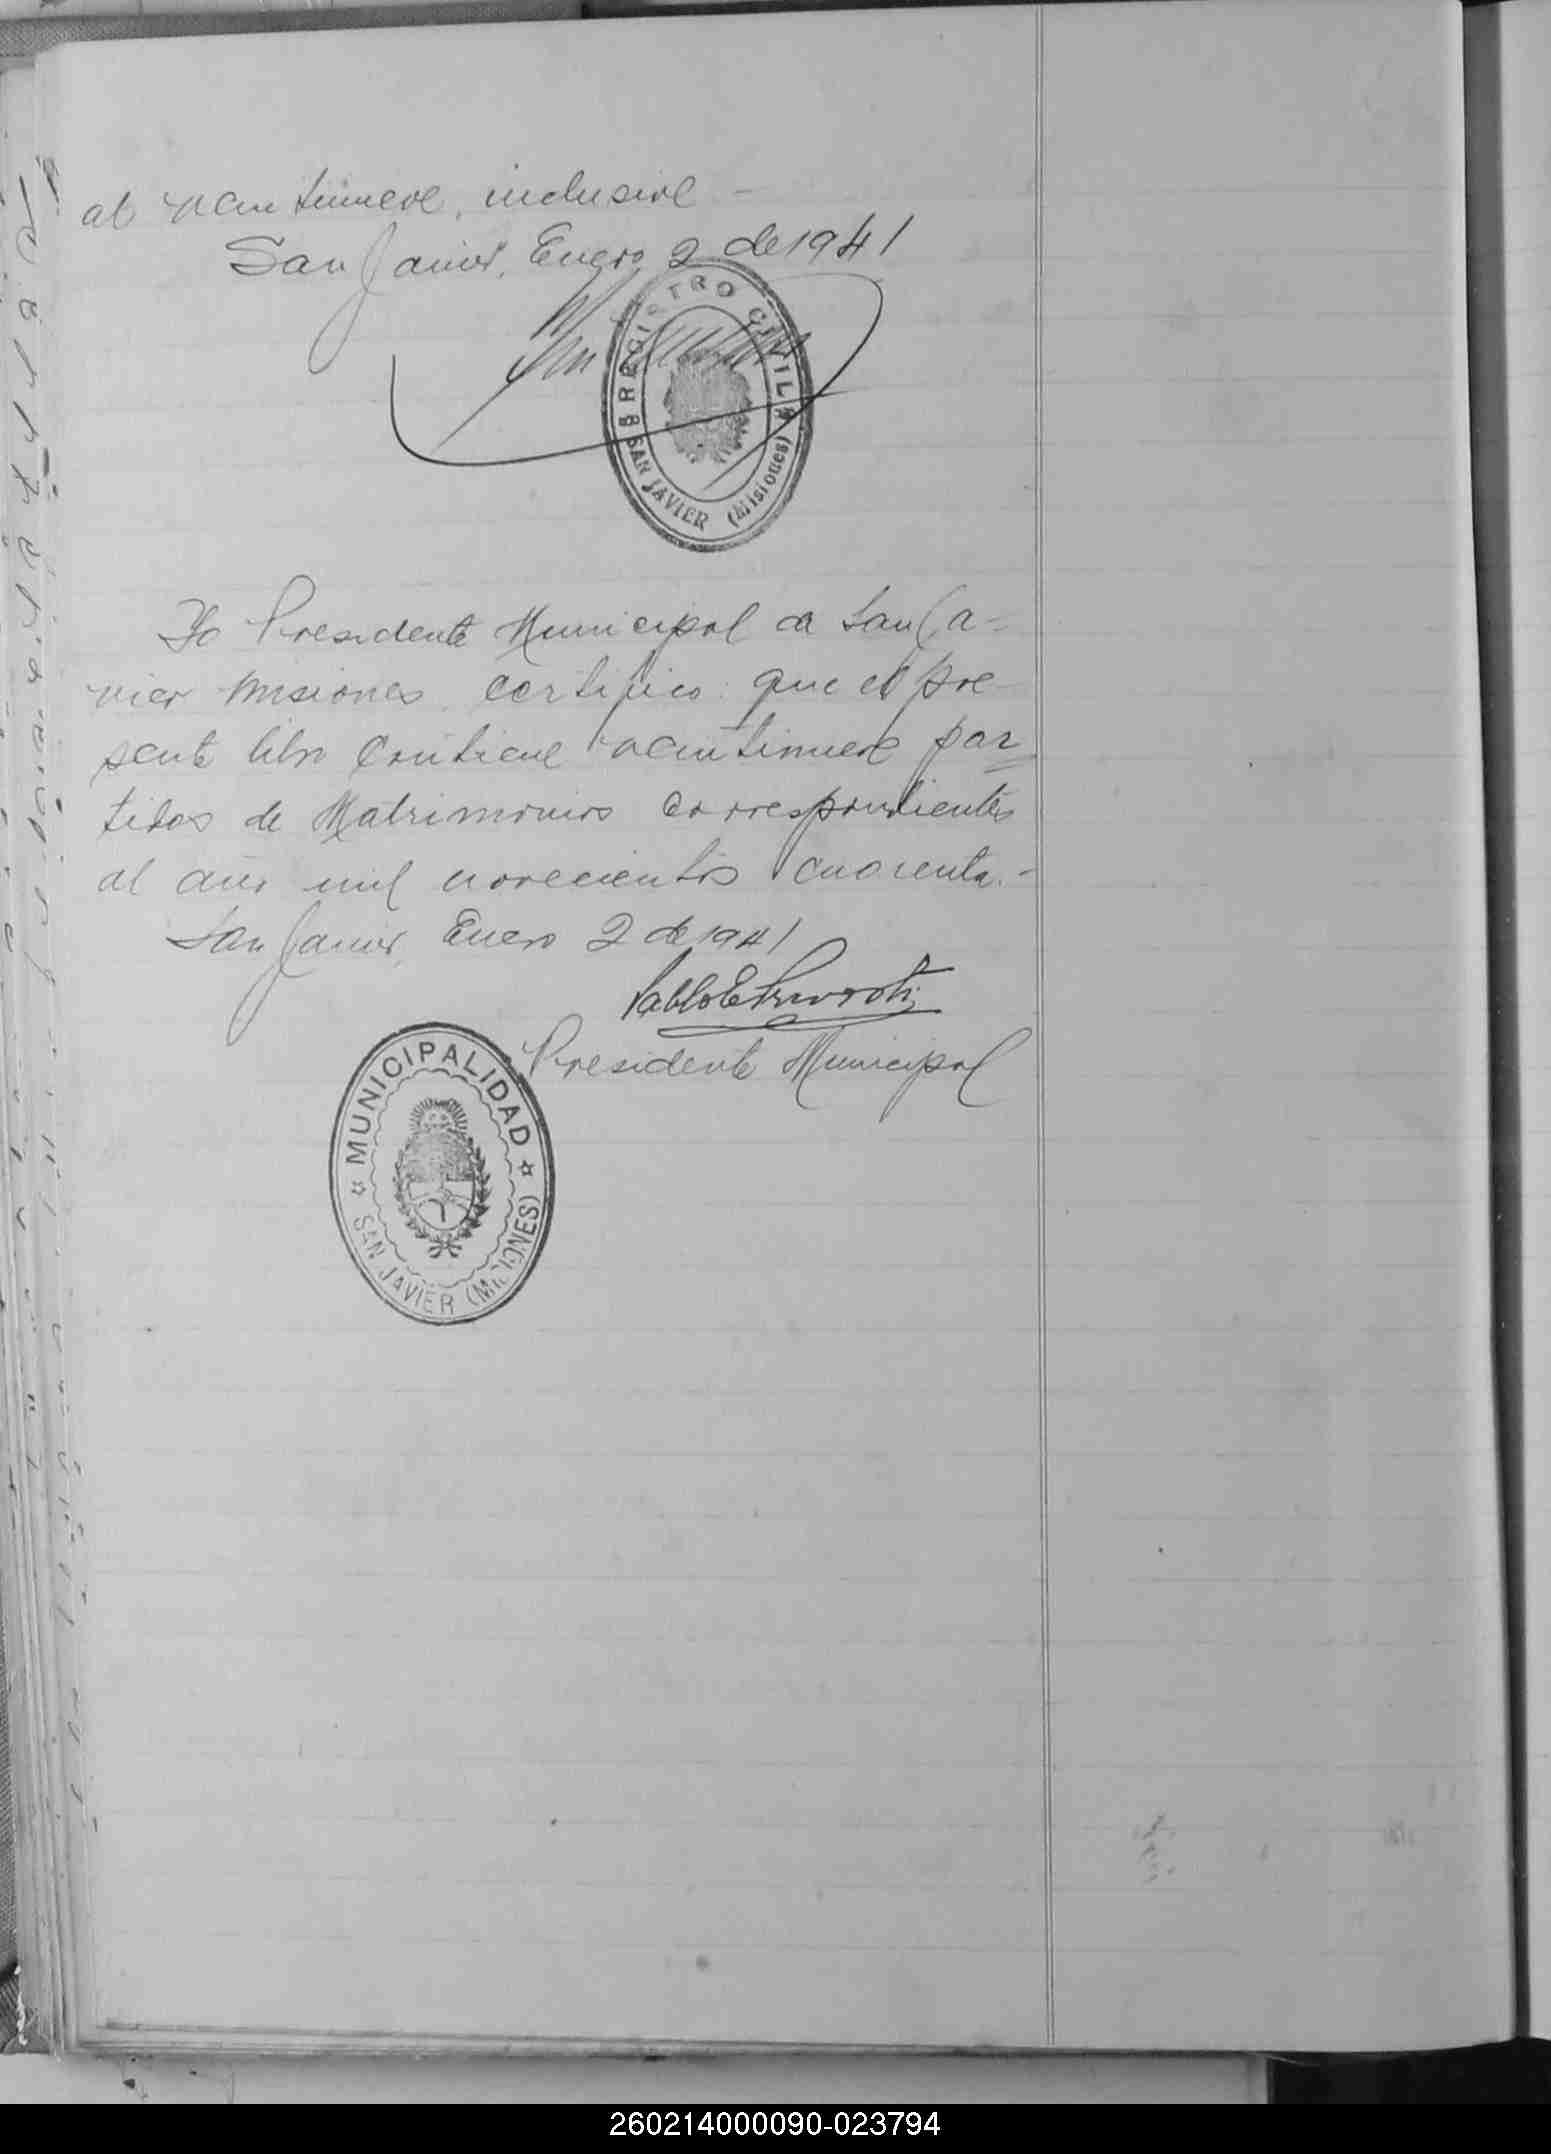 al veintinueve, inclusive -
San Javier, Enero 2 de 1941
REGISTRO CIVIL
SAN JAVIER (Misiones)
Yo Presidente Municipal de San Ja-
vier Misiones, certifico: que el pre-
sente libro contiene veintinueve par
tidas de Matrimonios correspondientes
al año mil novecientos cuarenta.-
San Javier, Enero 2 de 1941
Presidente Municipal
MUNICIPALIDAD
SAN JAVIER (MISIONES)
260214000090-023794